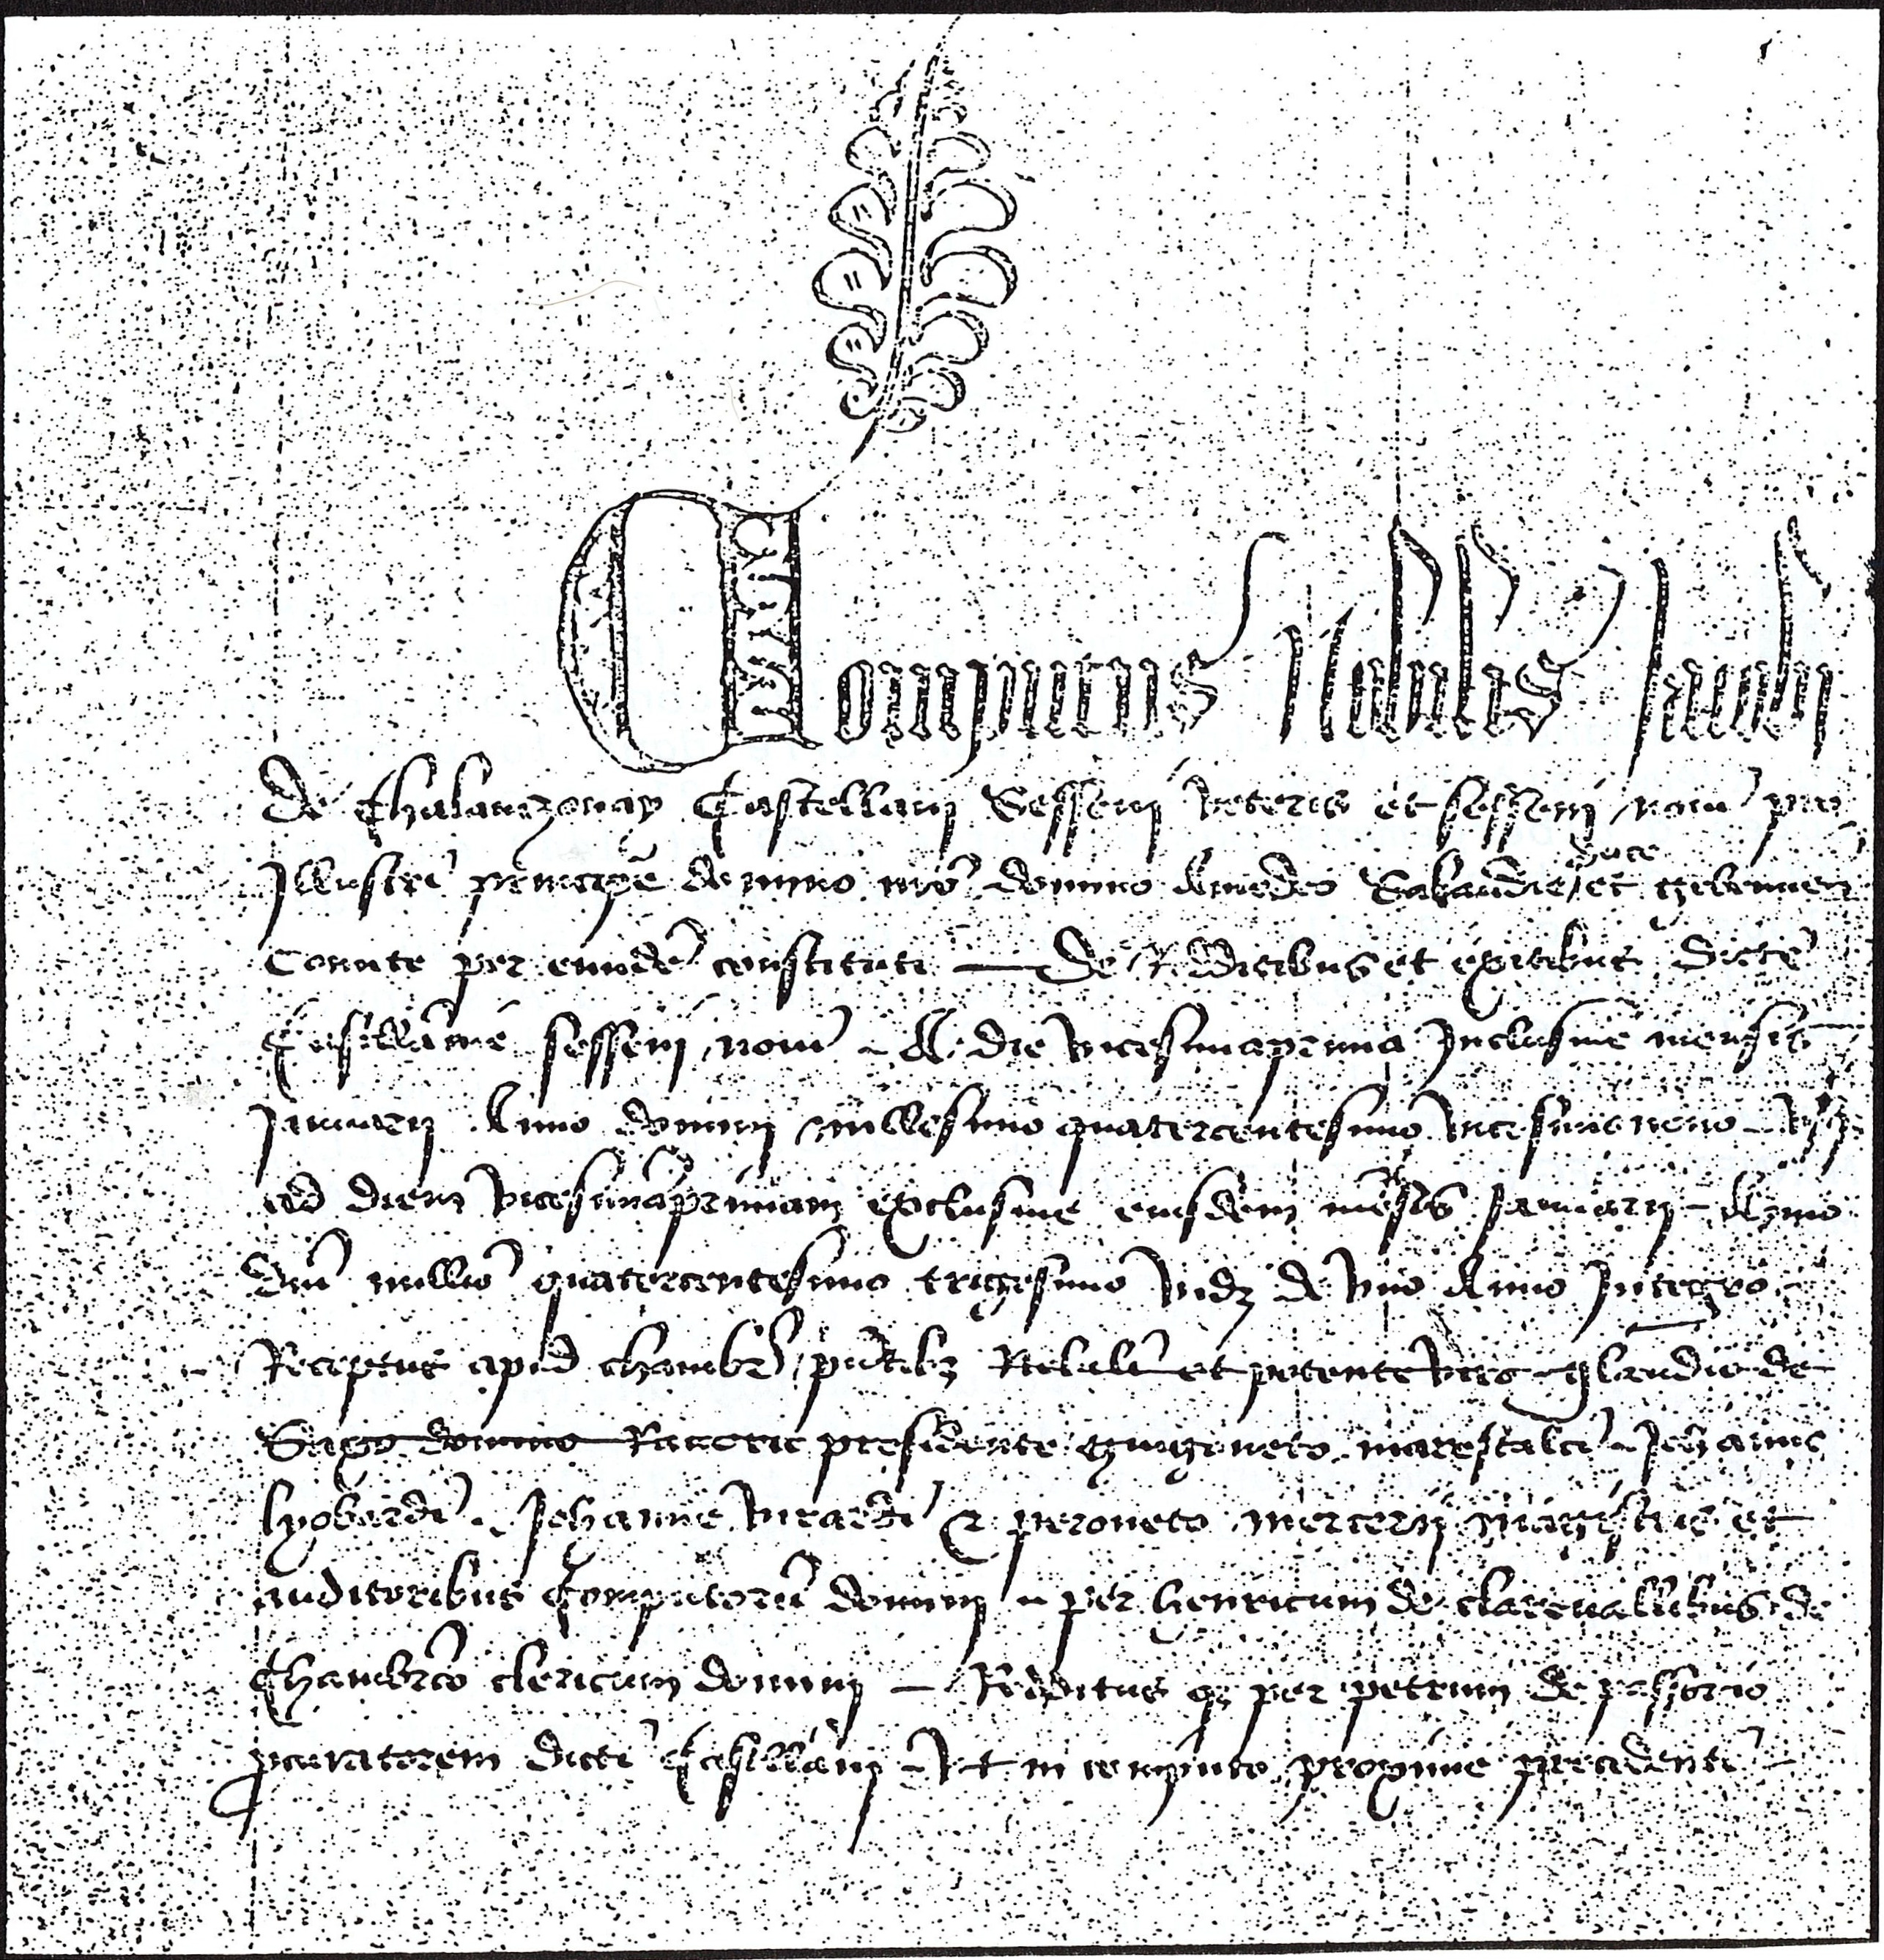 Computus Nobilis
de Chalanzonay Castellani Sesselli veteris et Sesselli novi pro
Illustri principe domino nro domino Amedeo Sabaudie duce et gebennen
Comite per eundem constituti — De Redditibus et exitibus dicte
Castellanie novi - A die vicesimaprima Inclusive mensis
Januarii Anno domini millesimo quatercentesimo vicesimo nono usq
ad diem vicesimaprimam exclusive eiusdem mensis Januarii - Anno
dni millio quatercentesimo trigesimo vidz de uno Anno Integro
Receptus apud chambr pntibz Nobili et potente viro glaudio de
Saxo domino presidente guigoneto marescalci Johanne
lyobardi Johanne et peroneto mercerii Magistris et
auditoribus Computorum domini per henricum de clarevallibus de
Chambriaco clericum domini — Redditus qz per petrum de
procuratorem dicti Castellani - Ut in computo proxime precedenti